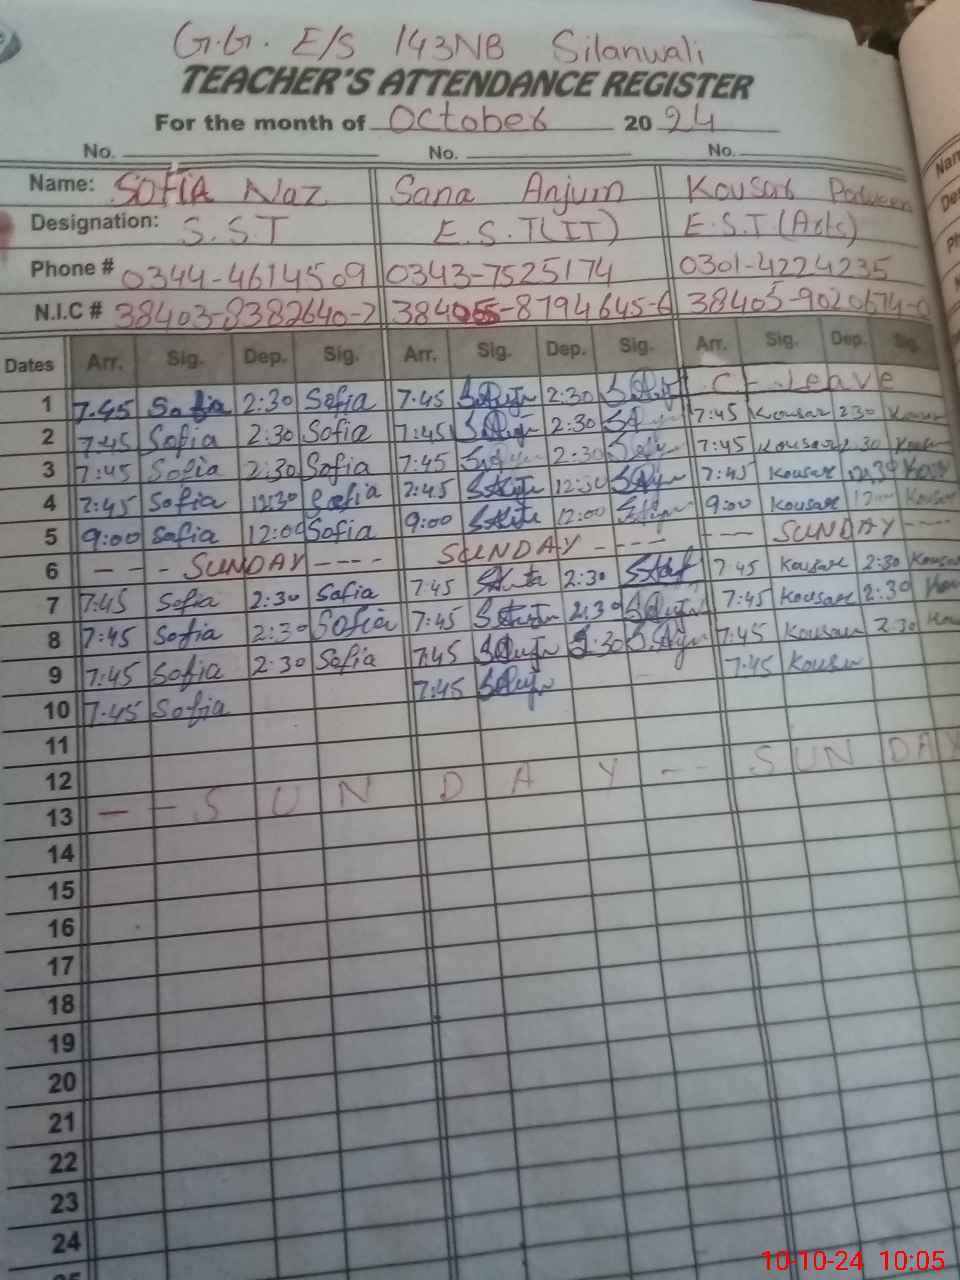 G.G. E/S 143NB Silanwali
TEACHER'S ATTENDANCE REGISTER
For the month of October 20 24
No. No. No.
Name: Sofia Naz Sana Anjum Kousar Parveen
Designation: S.S.T E.S.T(IT) E.S.T (Arts)
Phone # 0344-4614509 0343-7525174 0301-4224235
N.I.C # 38403-8382640-2 38405-8794645-6 38405-9020674-
Dates Arr. Sig. Dep. Sig. Arr. Sig. Dep. Sig. Arr. Sig. Dep. Sig.
1 7:45 Sofia 2:30 Sofia 7:45 2:30 C-Leave
2 7:45 Sofia 2:30 Sofia 7:45 2:30 7:45 Kousar 2 30
3 7:45 Sofia 2:30 Sofia 7:45 2:30 7:45 Kousar 30
4 7:45 Sofia 12:30 Sofia 7:45 12:30 7:45 Kousar
5 9:00 Sofia 12:00 Sofia 9:00 12:00 9:00 Kousar
6 --- SUNDAY ---- SUNDAY ---- --- SUNDAY ----
7 7:45 Sofia 2:30 Sofia 7:45 2:30 7:45 Kousar 2:30 Kousar
8 7:45 Sofia 2:30 Sofia 7:45 2:30 7:45 Kousar 2:30
9 7:45 Sofia 2:30 Sofia 7:45 2:30 7:45 Kousar 2:30
10 7:45 Sofia 7:45 7:45 Kousar
11
12
13 -- SUNDAY -- SUNDAY
14
15
16
17
18
19
20
21
22
23
24
10-10-24 10:05